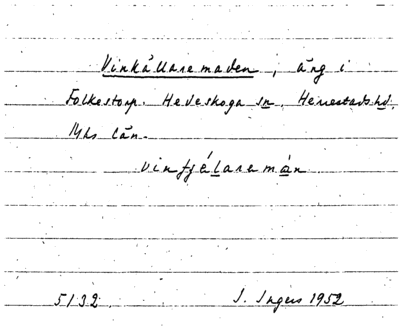 Vinkällaremaden, äng i
Folkestorp. Hedeskoga sn, Herrestads hd.
Mhs län.
vinfjélaremån
5132. I. Ingers 1952